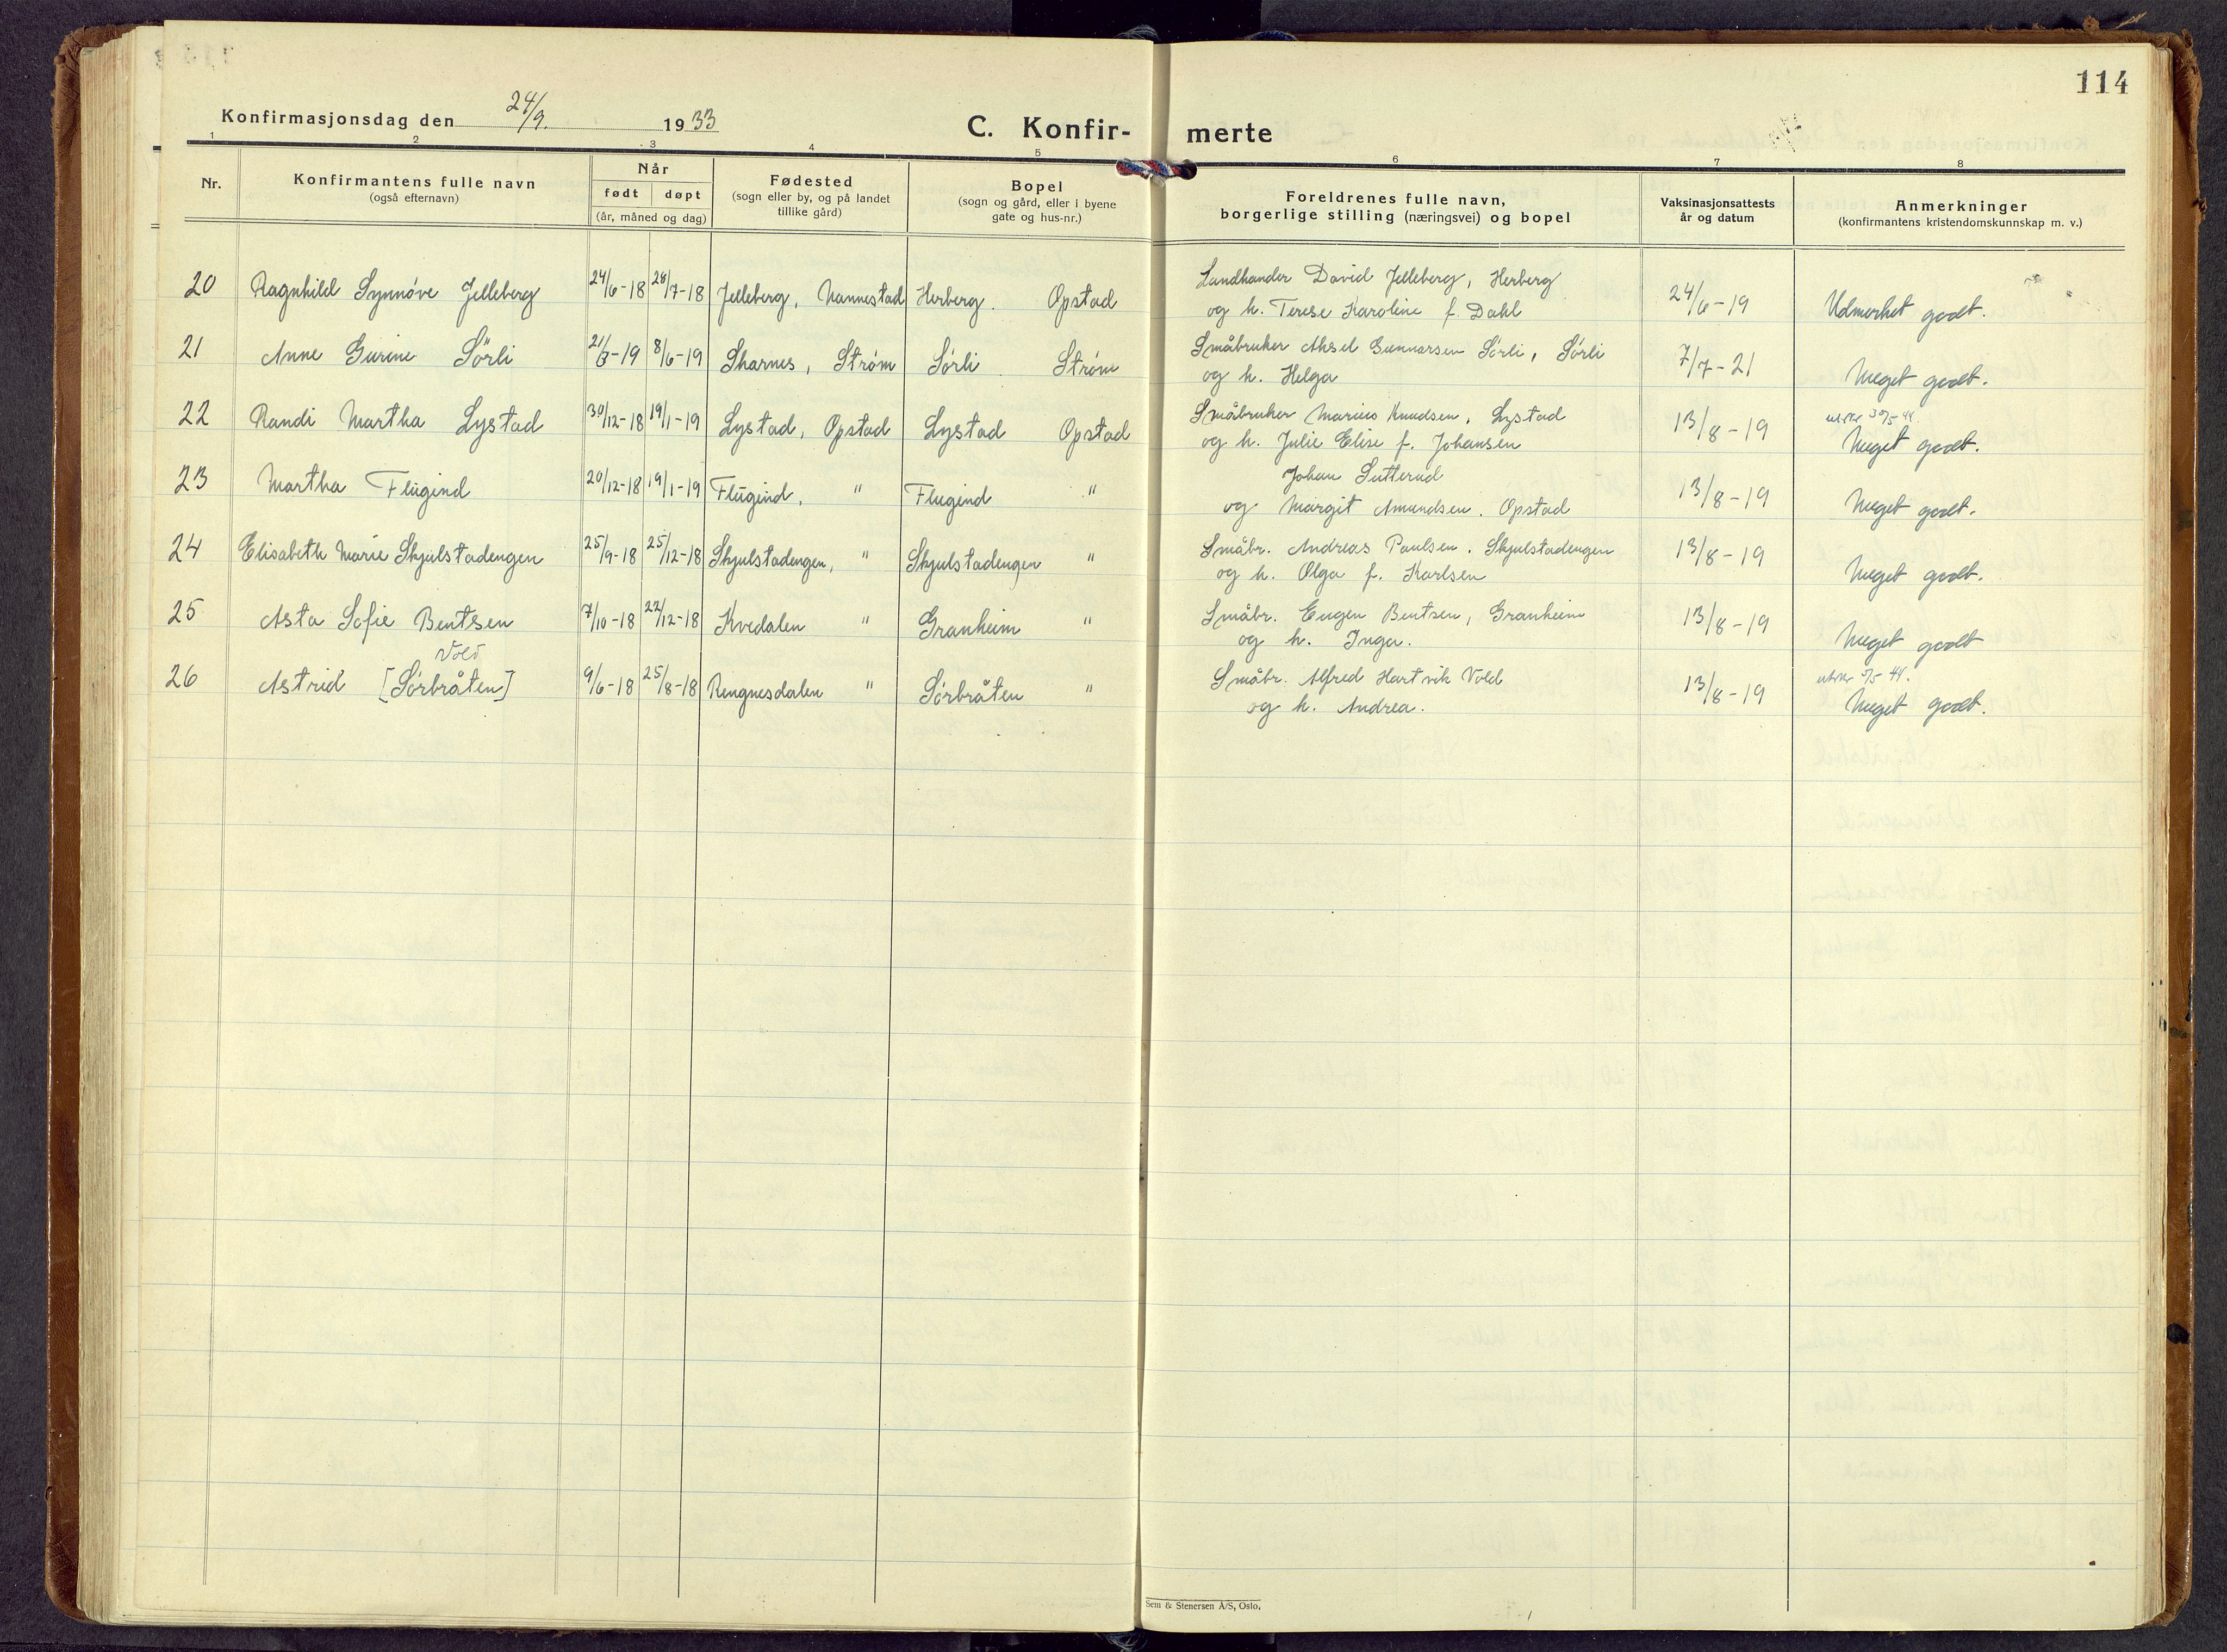 114
Konfirmasjonsdag den 24/9. 1933
C. Konfir- merte
1 2 3 4 5 6 7 8
Nr.
Konfirmantens fulle navn
(også efternavn)
Når
født døpt
(år, måned og dag)
Fødested
(sogn eller by, og på landet
tillike gård)
Bopel
(sogn og gård, eller i byene
gate og hus-nr.)
Foreldrenes fulle navn,
borgerlige stilling (næringsvei) og bopel
Vaksinasjonsattests
år og datum
Anmerkninger
(konfirmantens kristendomskunnskap m. v.)
20 Ragnhild Synnøve Jelleberg 24/6-18 28/7-18 Jelleberg, Nannestad Herberg. Opstad Landhandler David Jelleberg, Herberg
og h. Terese Karoline f. Dahl 24/6-19 Udmerket godt.
21 Anne Gurine Sörli 21/3-19 8/6-19 Skarnes, Strøm Sørli. Strøm Småbruker Aksel Gunnarsen Sørli, Sørli
og h. Helga 7/7-21 Meget godt.
22 Randi Martha Lystad 30/12-18 19/1-19 Lystad, Opstad Lystad Opstad Småbruker Marius Knudsen, Lystad
og h. Julie Elise f. Johansen 13/8-19 Meget godt.
23 Martha Flugind 20/12-18 19/1-19 Flugind, " Flugind " Johan Sutterud
og Margit Amundsen. Opstad 13/8-19 Meget godt.
24 Elisabeth Marie Skjulstadengen 25/9-18 25/12-18 Skjulstadengen, " Skjulstadengen " Småbr. Andreas Paulsen. Skjulstadengen
og h. Olga f. Karlsen 13/8-19 Meget godt.
25 Asta Sofie Bentsen 7/10-18 22/12-18 Kvedalen " Granheim " Småbr. Eugen Bentsen, Granheim
og h. Inga. 13/8-19 Meget godt
Vold
26 Astrid [Sørbråten] 9/6-18 25/8-18 Rengnesdalen " Sørbråten " Småbr. Alfred Hartvik Vold
og h. Andrea. 13/8-19 Meget godt.
Sem & Stenersen A/S, Oslo.